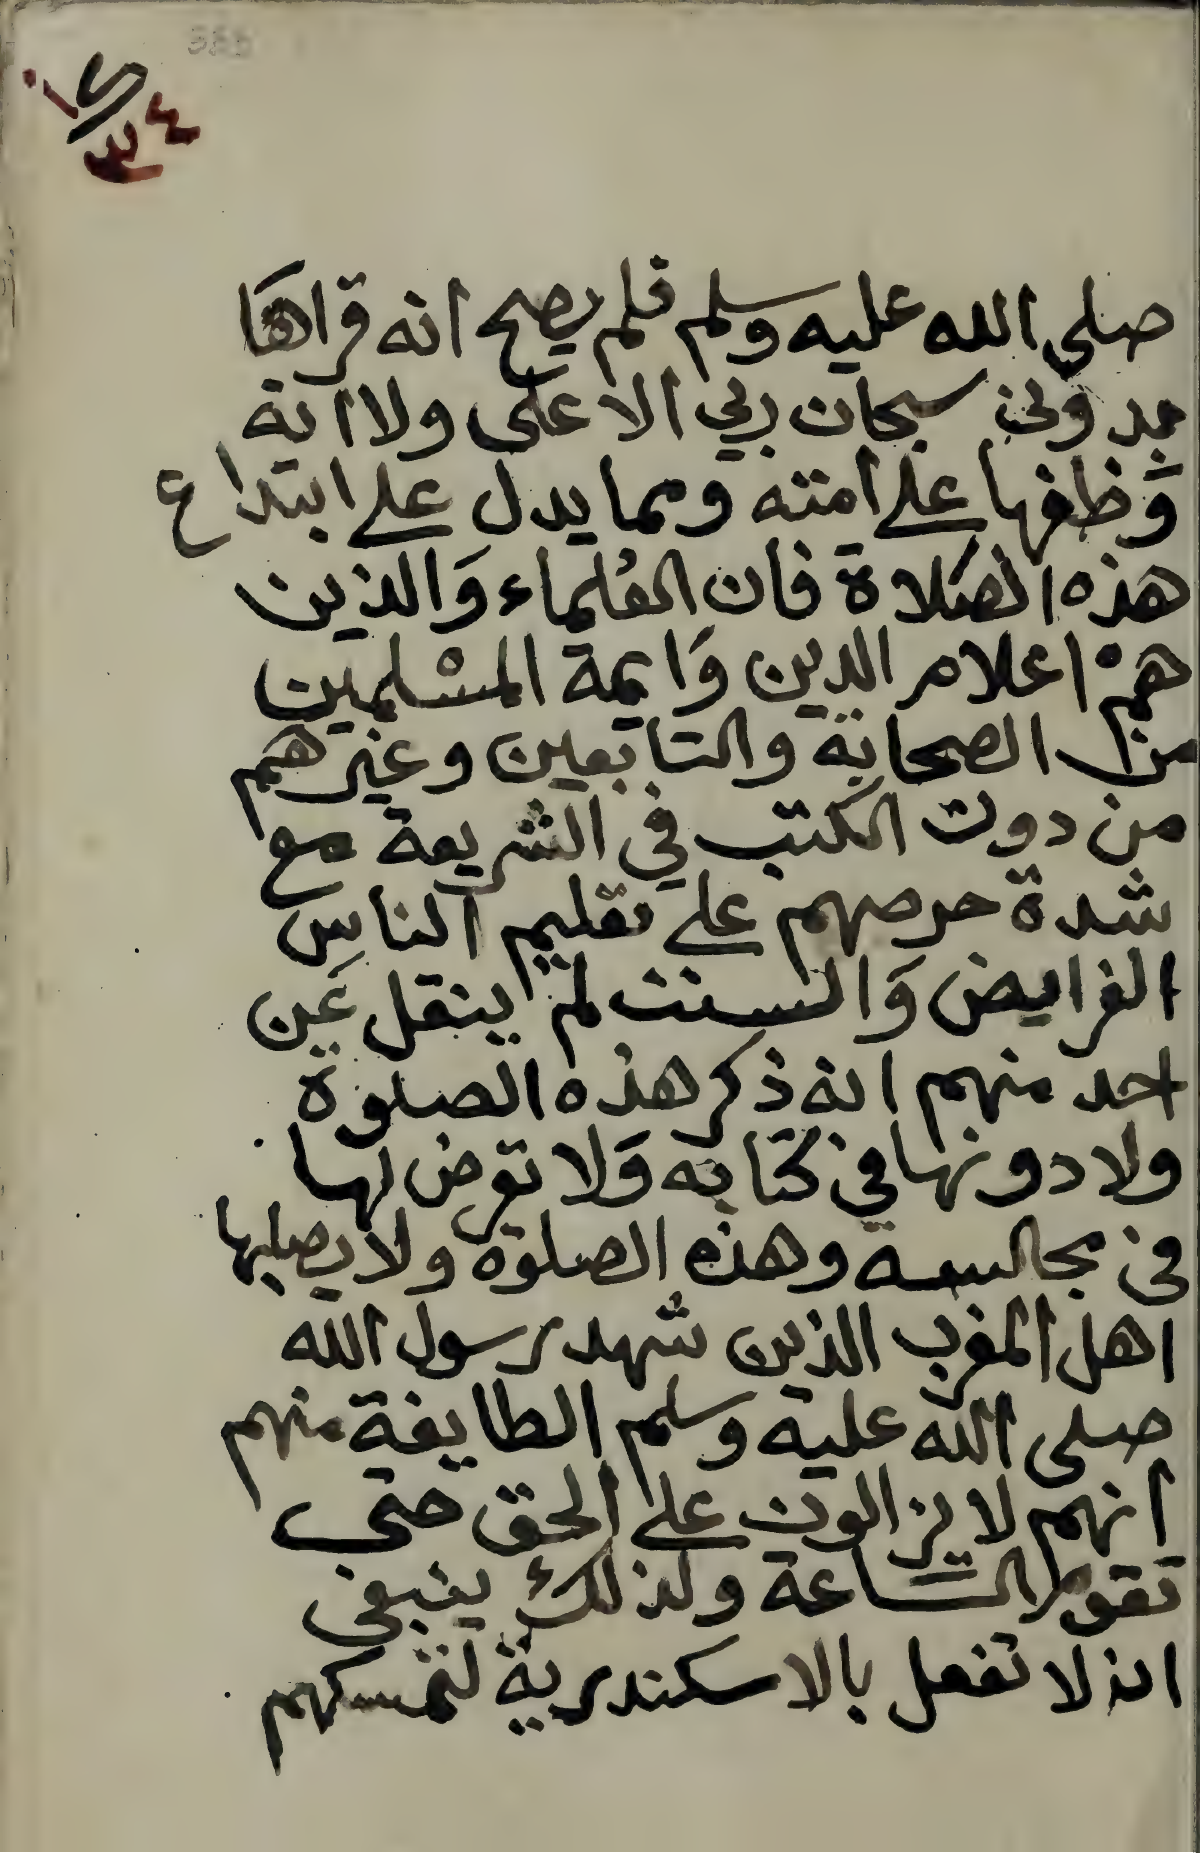 صلى الله عليه وسلم فلم يصح انه قراها
بدون سبحان ربي الاعلى ولا انه
وظفها على امته ومما يدل على ابتداع
هذه الصلاة فان العلماء والذين
هم اعلام الدين وايمة المسلمين
من الصحابة والتابعين وغيرهم
من دون الكتب في الشريعة مع
شدة حرصهم على تعليم الناس
الفرايض والسنن لم ينقل عن
احد منهم انه ذكر هذه الصلوة
ولا دونها في كتابه ولا تعرض لها
في مجالسه وهذه الصلوة ولا يصليها
اهل المغرب الذين شهد رسول الله
صلى الله عليه وسلم الطايفة منهم
انهم لا يزالون على الحق حتى
تقوم الساعة ولذلك ينبغي
ان لا تفعل بالاسكندرية لتمسكهم